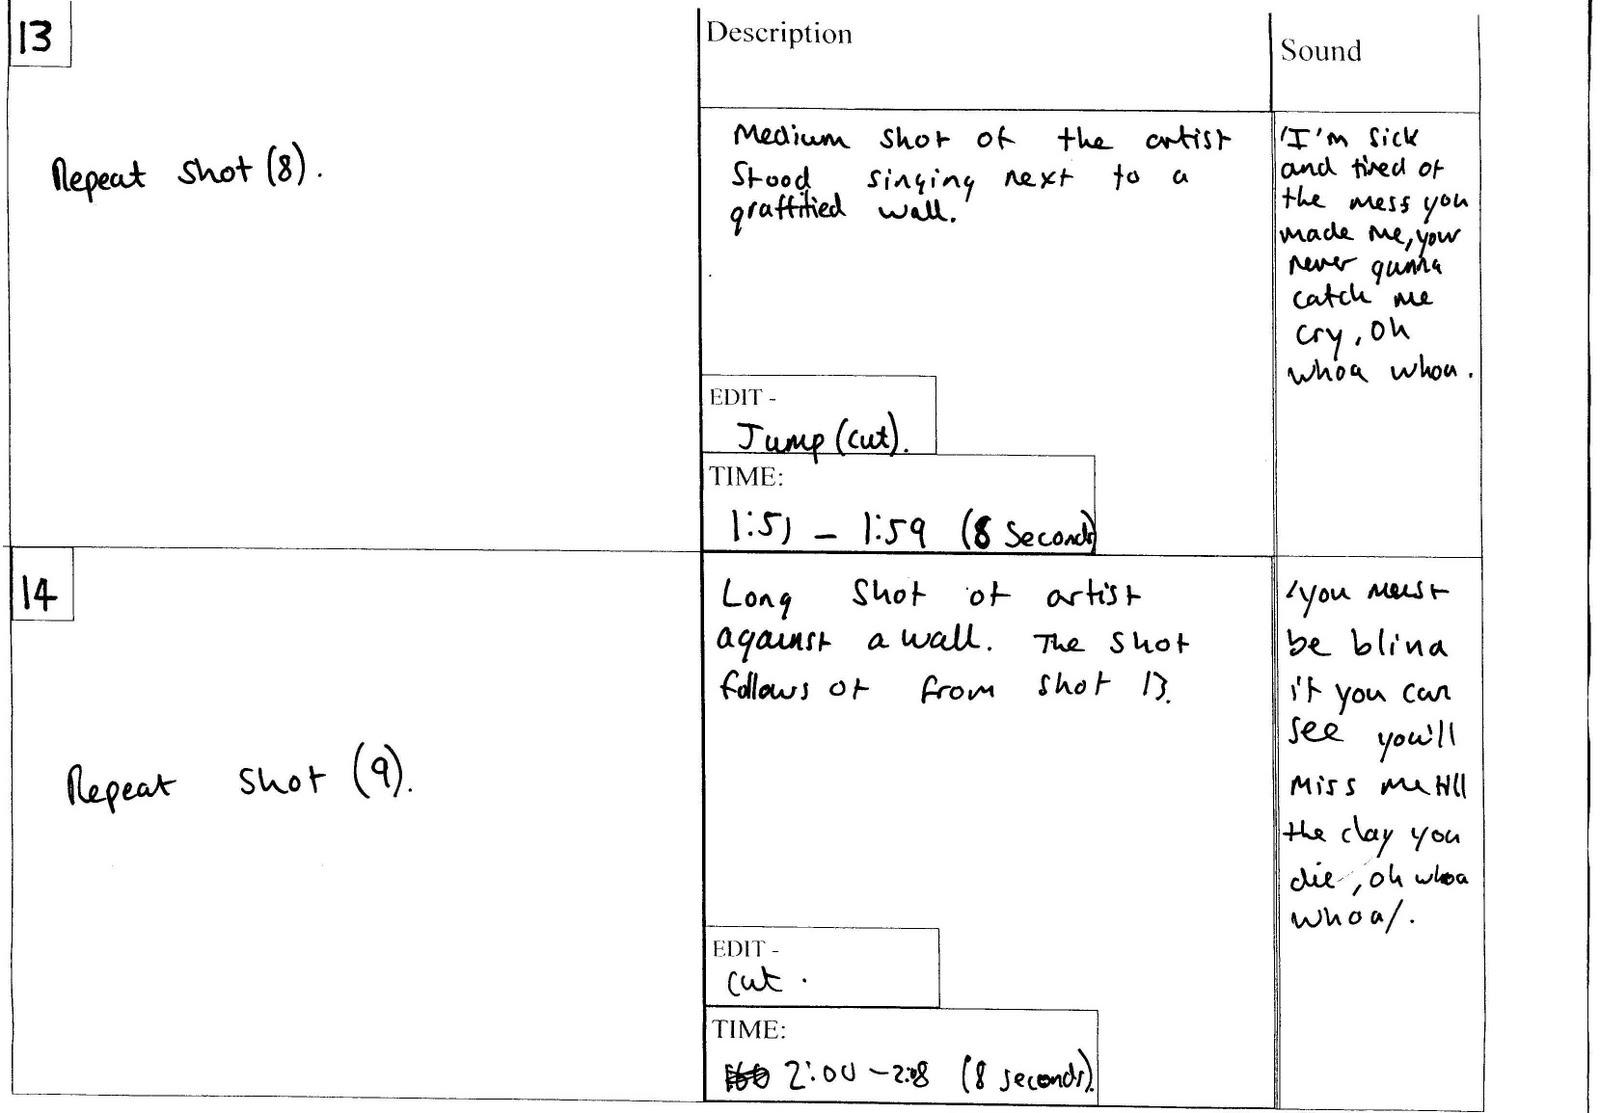 13
Description
Sound
Repeat Shot (8).
Medium Shot of the artist
Stood singing next to a
graffitied wall.
'I'm Sick
and tired of
the mess you
made me, your
never gunna
catch me
cry, Oh
whoa whoa.
EDIT -
Jump (cut).
TIME:
1:51 – 1:59 (8 Seconds)
14
Repeat Shot (9).
Long Shot of artist
against a wall. The Shot
follows of from Shot 13.
/you must
be blind
if you can
see you'll
Miss me till
the day you
die, oh whoa
whoa/.
EDIT -
cut.
TIME:
2:00 – 2:08 (8 seconds).